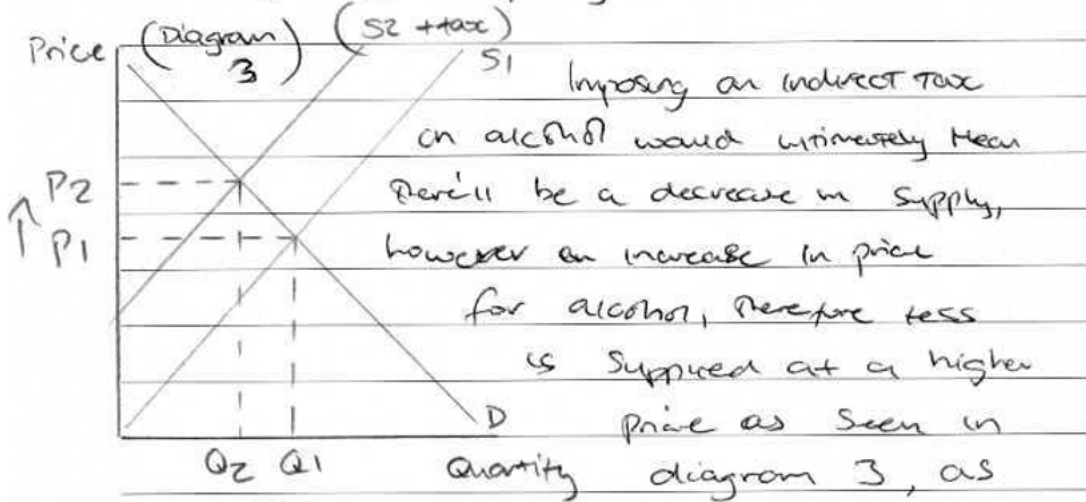 Price (Diagram 3) (S2 + tax)
S1
Imposing an indirect tax
on alcohol would ultimately mean
P2 there'll be a decrease in supply,
↑ P1 however an increase in price
for alcohol, therefore less
is supplied at a higher
D price as seen in
Q2 Q1 Quantity diagram 3, as